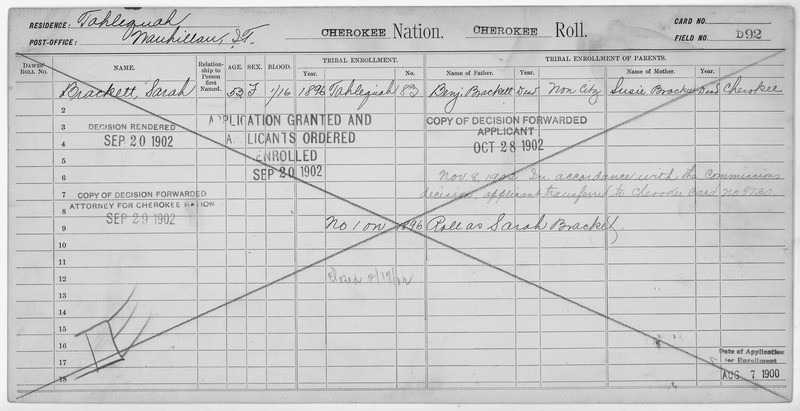 RESIDENCE: Tahlequah
POST-OFFICE: Wauhillau, I.T.
CHEROKEE Nation. CHEROKEE Roll.
CARD NO.
FIELD NO. D92
DAWES' ROLL NO.
NAME.
Relationship to Person first Named.
AGE.
SEX.
BLOOD.
TRIBAL ENROLLMENT.
Year.
No.
TRIBAL ENROLLMENT OF PARENTS.
Name of Father.
Year.
Name of Mother.
Year.
Brackett, Sarah 52 F 1/16 1896 Tahlequah 83 Benj. Brackett Dead Non Citz Susie Brackett Dead Cherokee
2
3 DECISION RENDERED
4 SEP 20 1902
APPLICATION GRANTED AND
APPLICANTS ORDERED
ENROLLED
SEP 20 1902
COPY OF DECISION FORWARDED
APPLICANT
OCT 28 1902
5
6
Nov. 8, 1902, In accordance with the Commissions
decision, applicant transferred to Cherokee Card No
7 COPY OF DECISION FORWARDED
8 ATTORNEY FOR CHEROKEE NATION
SEP 29 1902
9 No 1 on 1896 Roll as Sarah Bracket
10
11
12
13
14
15
16
17
18
Date of Application
for Enrollment
AUG 7 1900